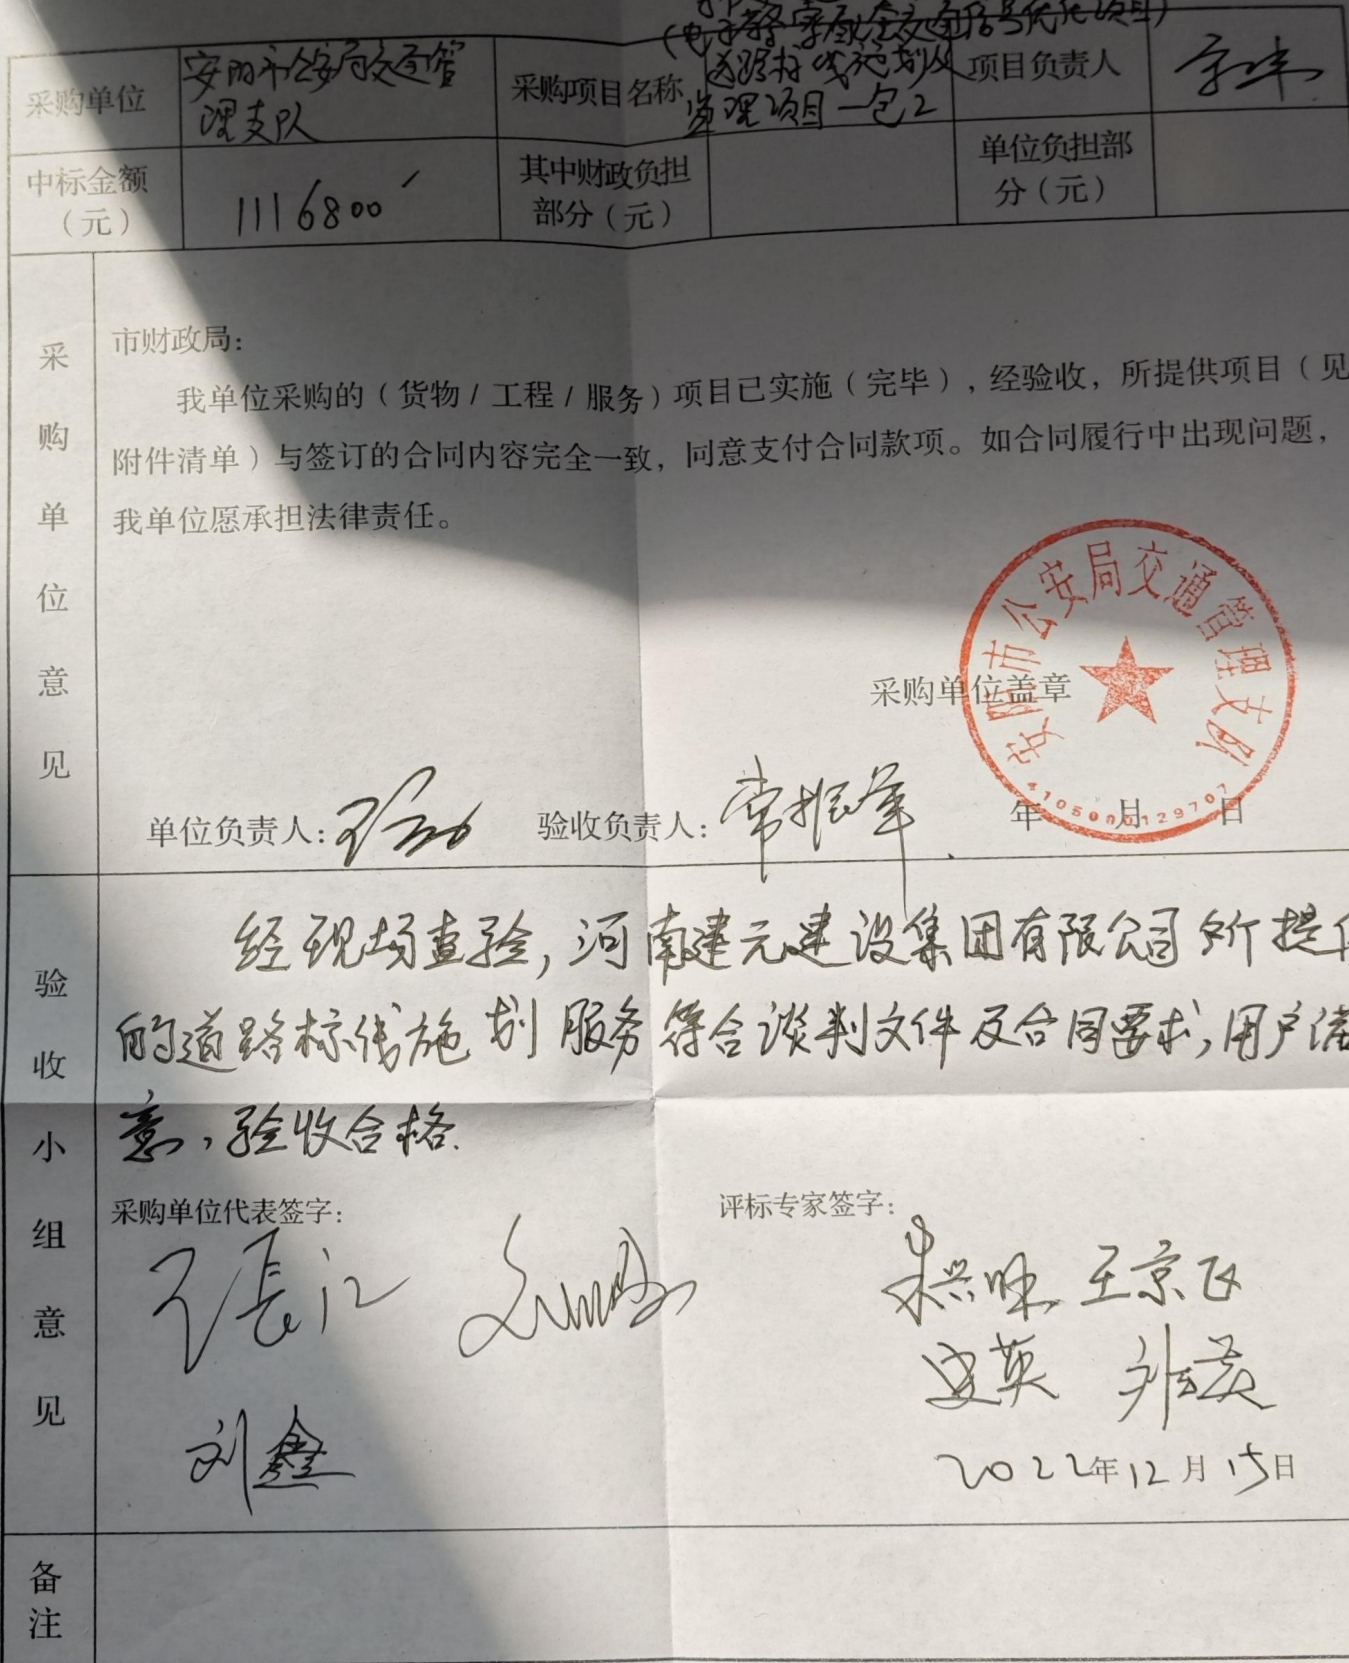 采购单位
安阳市公安局交通管
理支队
采购项目名称
道路标线施划及
监理项目一包2
项目负责人
中标金额
（元）
1116800
其中财政负担
部分（元）
单位负担部
分（元）
采购单位意见
市财政局：
我单位采购的（货物/工程/服务）项目已实施（完毕），经验收，所提供项目（见
附件清单）与签订的合同内容完全一致，同意支付合同款项。如合同履行中出现问题，
我单位愿承担法律责任。
安阳市公安局交通管理支队
采购单位盖章
单位负责人：
验收负责人：常振军
年 月 日
验收小组意见
经现场查验，河南建元建设集团有限公司所提
的道路标线施划服务符合谈判文件及合同要求，用户满
意，验收合格.
采购单位代表签字：
评标专家签字：
王京飞
刘鑫
2022年12月15日
备注